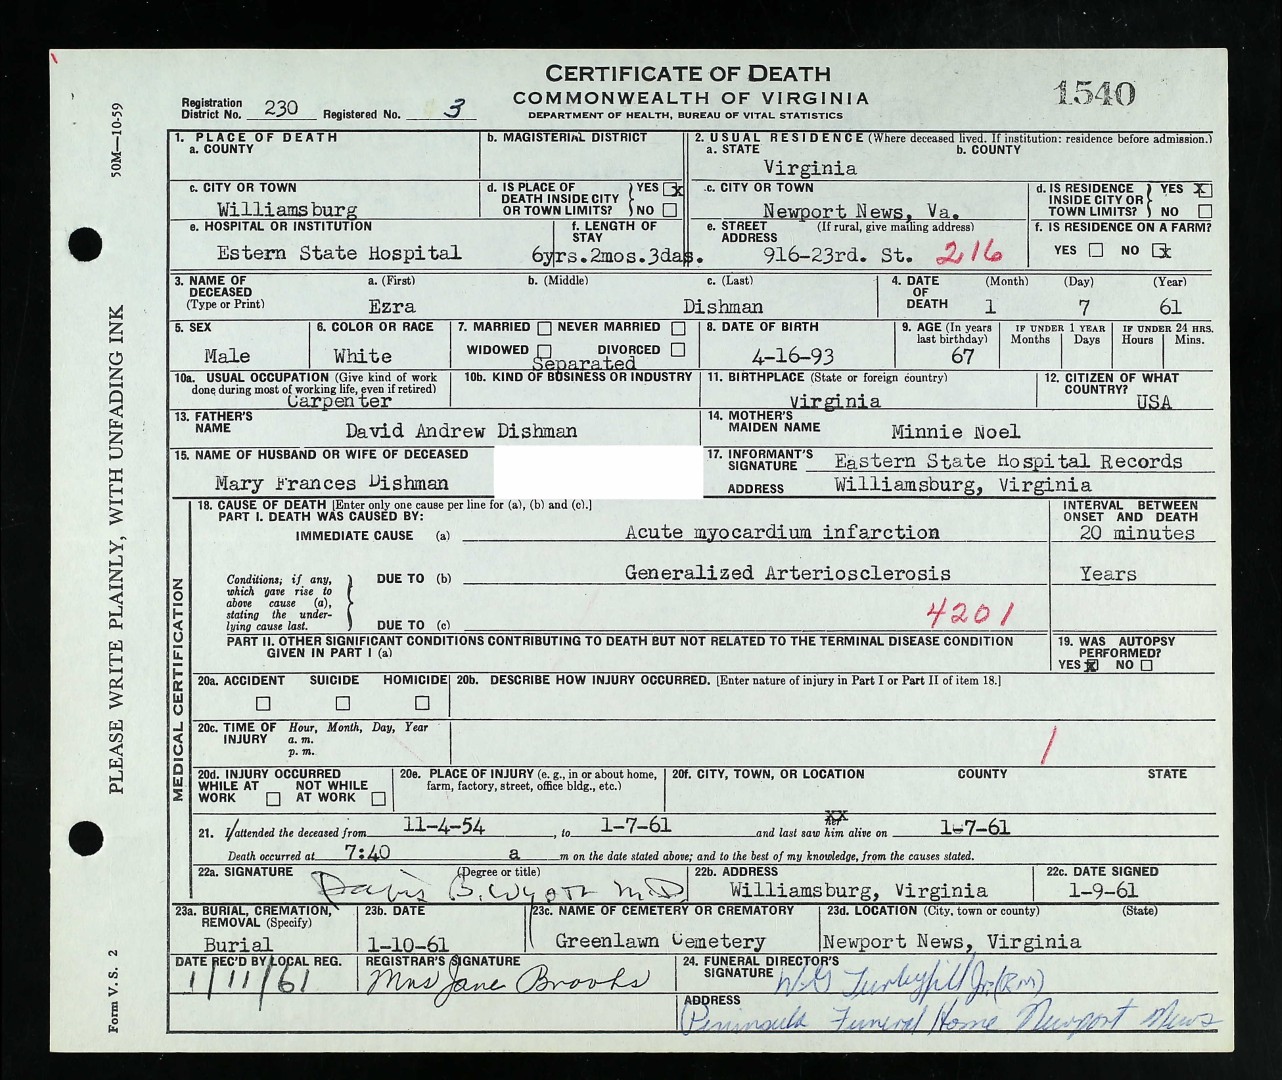 CERTIFICATE OF DEATH
COMMONWEALTH OF VIRGINIA
DEPARTMENT OF HEALTH, BUREAU OF VITAL STATISTICS
1540
Registration District No. 230 Registered No. 3
50M—10-59
PLEASE WRITE PLAINLY, WITH UNFADING INK
Form V. S. 2
1. PLACE OF DEATH
a. COUNTY
b. MAGISTERIAL DISTRICT
2. USUAL RESIDENCE (Where deceased lived. If institution: residence before admission.)
a. STATE
b. COUNTY
Virginia
c. CITY OR TOWN
Williamsburg
d. IS PLACE OF DEATH INSIDE CITY OR TOWN LIMITS? YES x NO
c. CITY OR TOWN
Newport News, Va.
d. IS RESIDENCE INSIDE CITY OR TOWN LIMITS? YES X NO
e. HOSPITAL OR INSTITUTION
Estern State Hospital
f. LENGTH OF STAY
6yrs.2mos.3das.
e. STREET ADDRESS (If rural, give mailing address)
916-23rd. St. 216
f. IS RESIDENCE ON A FARM?
YES NO x
3. NAME OF DECEASED (Type or Print)
a. (First) b. (Middle) c. (Last)
Ezra Dishman
4. DATE OF DEATH (Month) (Day) (Year)
1 7 61
5. SEX
Male
6. COLOR OR RACE
White
7. MARRIED NEVER MARRIED
WIDOWED DIVORCED
Separated
8. DATE OF BIRTH
4-16-93
9. AGE (In years last birthday)
67
IF UNDER 1 YEAR
Months Days
IF UNDER 24 HRS.
Hours Mins.
10a. USUAL OCCUPATION (Give kind of work done during most of working life, even if retired)
Carpenter
10b. KIND OF BUSINESS OR INDUSTRY
11. BIRTHPLACE (State or foreign country)
Virginia
12. CITIZEN OF WHAT COUNTRY?
USA
13. FATHER'S NAME
David Andrew Dishman
14. MOTHER'S MAIDEN NAME
Minnie Noel
15. NAME OF HUSBAND OR WIFE OF DECEASED
Mary Frances Dishman
17. INFORMANT'S SIGNATURE Eastern State Hospital Records
ADDRESS Williamsburg, Virginia
MEDICAL CERTIFICATION
18. CAUSE OF DEATH [Enter only one cause per line for (a), (b) and (c).]
PART I. DEATH WAS CAUSED BY:
IMMEDIATE CAUSE (a) Acute myocardium infarction
INTERVAL BETWEEN ONSET AND DEATH
20 minutes
Conditions, if any, which gave rise to above cause (a), stating the underlying cause last.
DUE TO (b) Generalized Arteriosclerosis
Years
4201
DUE TO (c)
PART II. OTHER SIGNIFICANT CONDITIONS CONTRIBUTING TO DEATH BUT NOT RELATED TO THE TERMINAL DISEASE CONDITION GIVEN IN PART I (a)
19. WAS AUTOPSY PERFORMED?
YES X NO
20a. ACCIDENT SUICIDE HOMICIDE
20b. DESCRIBE HOW INJURY OCCURRED. [Enter nature of injury in Part I or Part II of item 18.]
20c. TIME OF INJURY Hour, Month, Day, Year
a. m.
p. m.
20d. INJURY OCCURRED
WHILE AT WORK NOT WHILE AT WORK
20e. PLACE OF INJURY (e. g., in or about home, farm, factory, street, office bldg., etc.)
20f. CITY, TOWN, OR LOCATION COUNTY STATE
21. I attended the deceased from 11-4-54, to 1-7-61 and last saw him alive on 1-7-61
Death occurred at 7:40 a m on the date stated above; and to the best of my knowledge, from the causes stated.
22a. SIGNATURE (Degree or title)
Davis B. Wyatt M.D.
22b. ADDRESS
Williamsburg, Virginia
22c. DATE SIGNED
1-9-61
23a. BURIAL, CREMATION, REMOVAL (Specify)
Burial
23b. DATE
1-10-61
23c. NAME OF CEMETERY OR CREMATORY
Greenlawn Cemetery
23d. LOCATION (City, town or county) (State)
Newport News, Virginia
DATE REC'D BY LOCAL REG.
1/11/61
REGISTRAR'S SIGNATURE
Mrs Jane Brooks
24. FUNERAL DIRECTOR'S SIGNATURE
ADDRESS
Peninsula Funeral Home Newport News